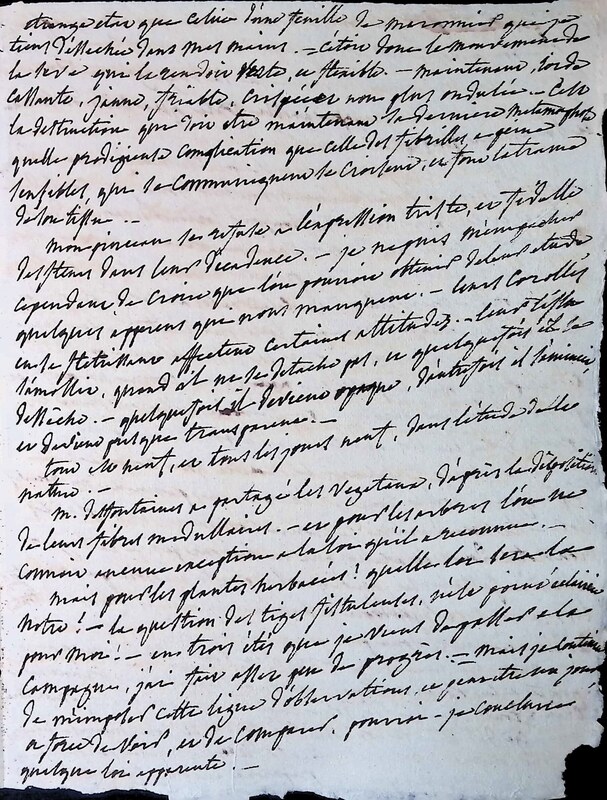 étrange etre que celui d'une feuille de maronnier que je
tiens desséchée dans mes mains. — c'étoit donc le mouvement de
la seve qui la rendoit verte, et flexible. — maintenant, roide
cassante, jaune, friable, crispée et non plus ondulée. — C'est
la destruction qui doit etre maintenant sa derniere metamorphose
quelle prodigieuse complication que celle des fibrilles a peine
sensibles, qui se communiquent se croisent, et font la trame
de son tissu. —
mon pinceau se refuse a l'expression triste, et fidelle
des fleurs dans leur décadence. — je ne puis m'empecher
cependant de croire que l'on pourroit obtenir de leur etude
quelques apperçus qui nous manquent. — leurs Corolles
en se fletrissant affectent certaines attitudes. — leur tissu
s'amollit, quand il ne se detache pas, et quelquefois il se
dessèche. — quelquefois il devient opaque, d'autrefois il s'amincit,
et devient presque transparent. —
tout est neuf, et tous les jours neuf, dans l'étude de la
nature. —
m. desfontaines a partagé les vegetaux, d'après la disposition
de leurs fibres medullaires. — et pour les arbres l'on ne
connoit aucune exception a la loi qu'il a reconnue. —
mais pour les plantes herbacées! quelle loi sera la
notre! — la question des tiges fistuleuses, n'est point éclaircie
pour moi! — en trois étés que je viens de passer a la
Campagne, j'ai fait assez peu de progrès. — mais je continue
de m'imposer cette ligne d'observations, et peut etre un jour
a force de voir, et de comparer, pourrai-je conclure
quelque loi apparente. —